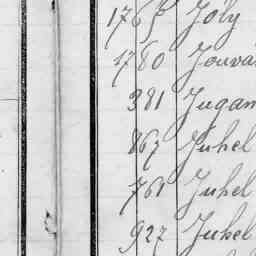 1765 Joly
1780 Jouva
381 Jugan
867 Juhel
761 Juhel
927 Juhel